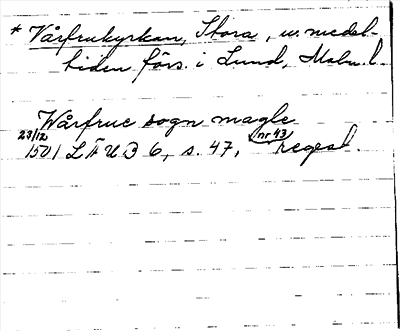 * Vårfrukyrkan, Stora, u. medel-
tiden förs. i Lund, Malm. l.
Wårfrue sogn magle
23/12
1501 LÄUB 6, s. 47, nr 43 regest.